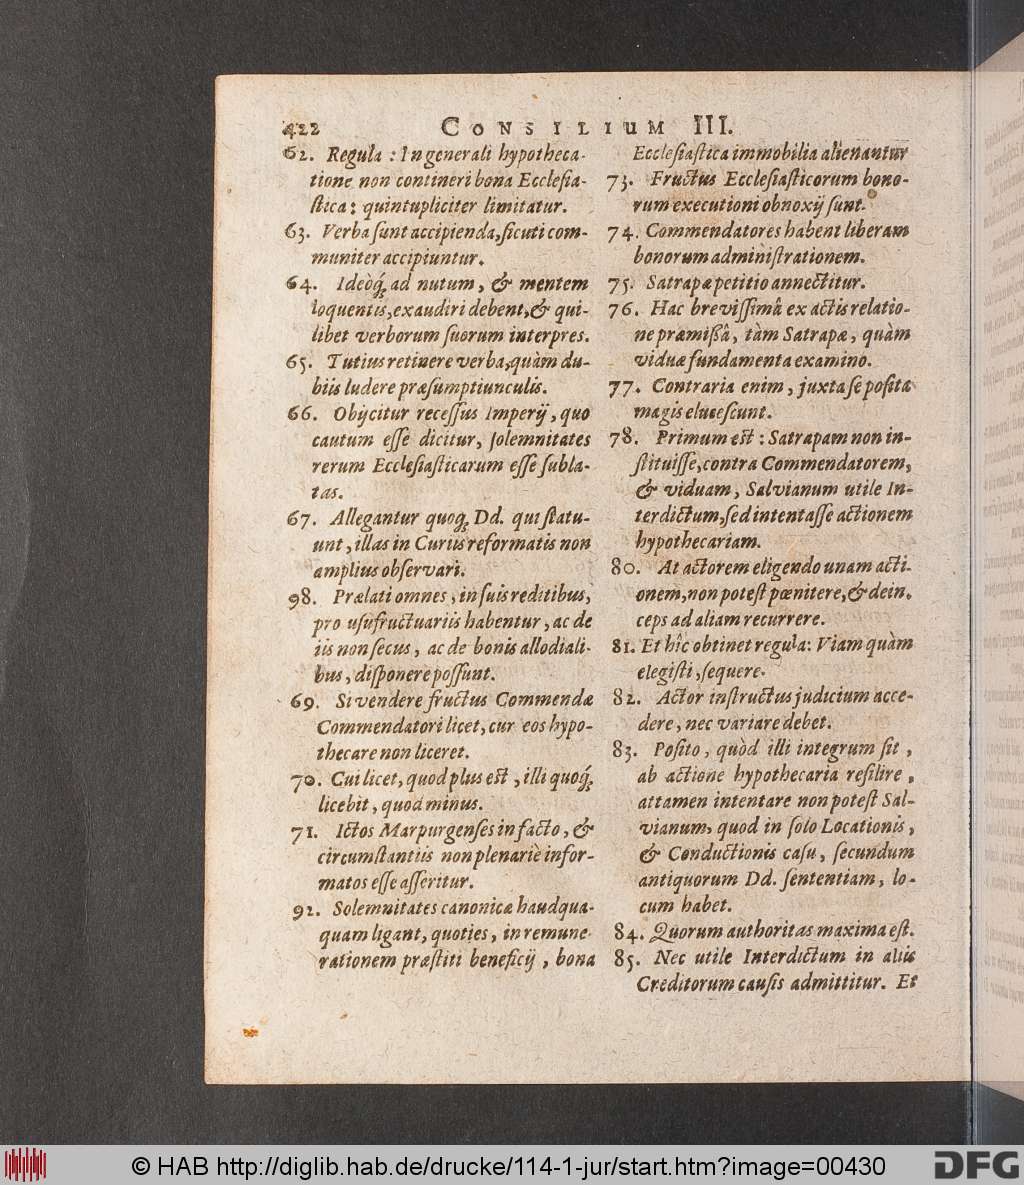 422
CONSILIUM III.
62. Regula : In generali hypotheca-
tione non contineri bona Ecclesia-
stica : quintupliciter limitatur.
63. Verba sunt accipienda, sicuti com-
muniter accipiuntur.
64. Ideòq́; ad nutum, & mentem
loquentis, exaudiri debent, & qui-
libet verborum suorum interpres.
65. Tutius retinere verba, quàm du-
biis ludere præsumptiunculis.
66. Obijcitur recessus Imperij, quo
cautum esse dicitur, solemnitates
rerum Ecclesiasticarum esse subla-
tas.
67. Allegantur quoq́; Dd. qui statu-
unt, illas in Curiis reformatis non
amplius observari.
98. Prælati omnes, in suis reditibus,
pro usufructuariis habentur, ac de
iis non secus, ac de bonis allodiali-
bus, disponere possunt.
69. Si vendere fructus Commendæ
Commendatori licet, cur eos hypo-
thecare non liceret.
70. Cui licet, quod plus est, illi quoq́;
licebit, quod minus.
71. Ictos Marpurgenses in facto, &
circumstantiis non plenariè infor-
matos esse asseritur.
92. Solemnitates canonicæ haudqua-
quam ligant, quoties, in remune-
rationem præstiti beneficij, bona
Ecclesiastica immobilia alienantur
73. Fructus Ecclesiasticorum bono-
rum executioni obnoxij sunt.
74. Commendatores habent liberam
bonorum administrationem.
75. Satrapæ petitio annectitur.
76. Hac brevissimâ ex actis relatio-
ne præmißâ, tàm Satrapæ, quàm
viduæ fundamenta examino.
77. Contraria enim, juxta se posita
magis elucescunt.
78. Primum est : Satrapam non in-
stituisse, contra Commendatorem,
& viduam, Salvianum utile In-
terdictum, sed intentasse actionem
hypothecariam.
80. At actorem eligendo unam acti-
onem, non potest pœnitere, & dein-
ceps ad aliam recurrere.
81. Et hîc obtinet regula: Viam quàm
elegisti, sequere.
82. Actor instructus judicium acce-
dere, nec variare debet.
83. Posito, quòd illi integrum sit,
ab actione hypothecaria resilire,
attamen intentare non potest Sal-
vianum, quod in solo Locationis,
& Conductionis casu, secundum
antiquorum Dd. sententiam, lo-
cum habet.
84. Quorum authoritas maxima est.
85. Nec utile Interdictum in aliis
Creditorum causis admittitur. Et
© HAB http://diglib.hab.de/drucke/114-1-jur/start.htm?image=00430
DFG